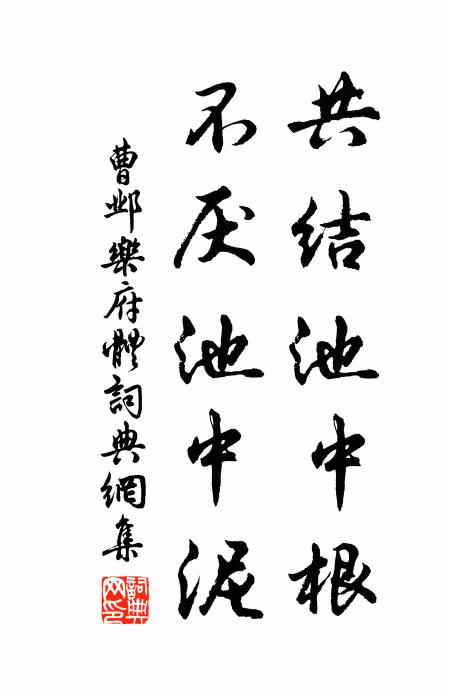 共结池中根
不厌池中泥
曹邺樂府體詞典網集
詞典
网印